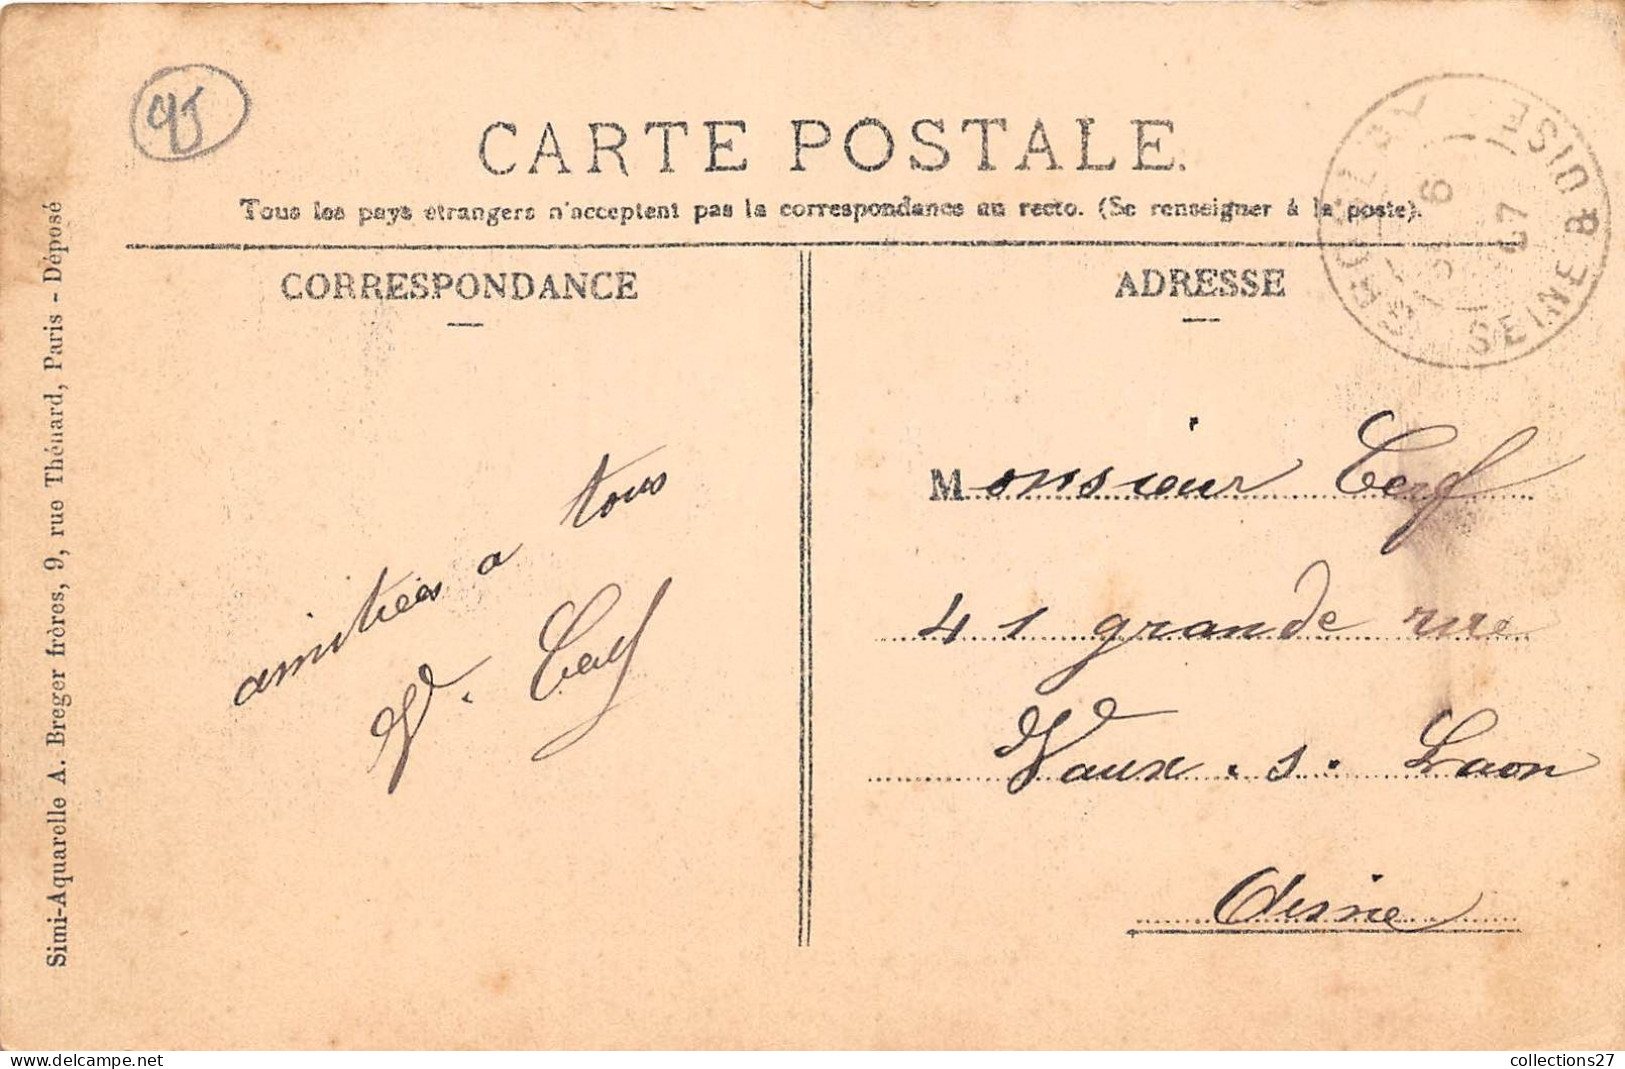 95
CARTE POSTALE.
Tous les pays étrangers n'acceptent pas la correspondance au recto. (Se renseigner à la poste).
CORRESPONDANCE
amitiées a tous
V. Cerf
ADRESSE
6
07
SEINE & OISE
Monsieur Cerf
41 grande rue
Vaux. s. Laon
Aisne
Simi-Aquarelle A. Breger frères, 9, rue Thénard, Paris - Déposé
collections27